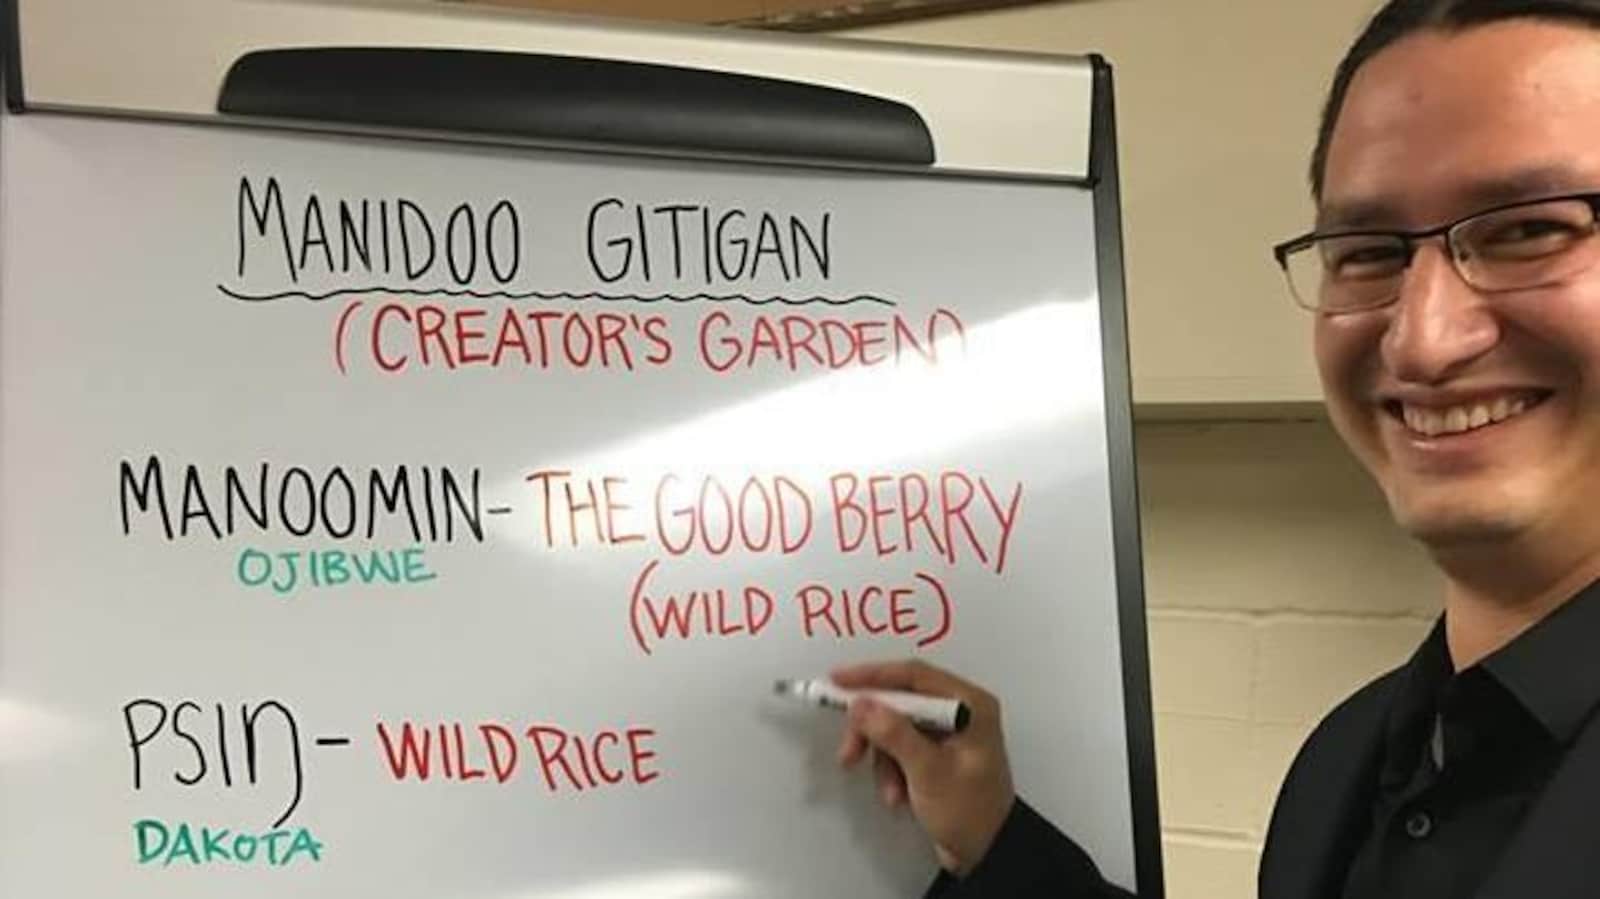 MANIDOO GITIGAN
(CREATOR'S GARDEN)
MANOOMIN - THE GOOD BERRY
OJIBWE
(WILD RICE)
PSIŊ - WILD RICE
DAKOTA